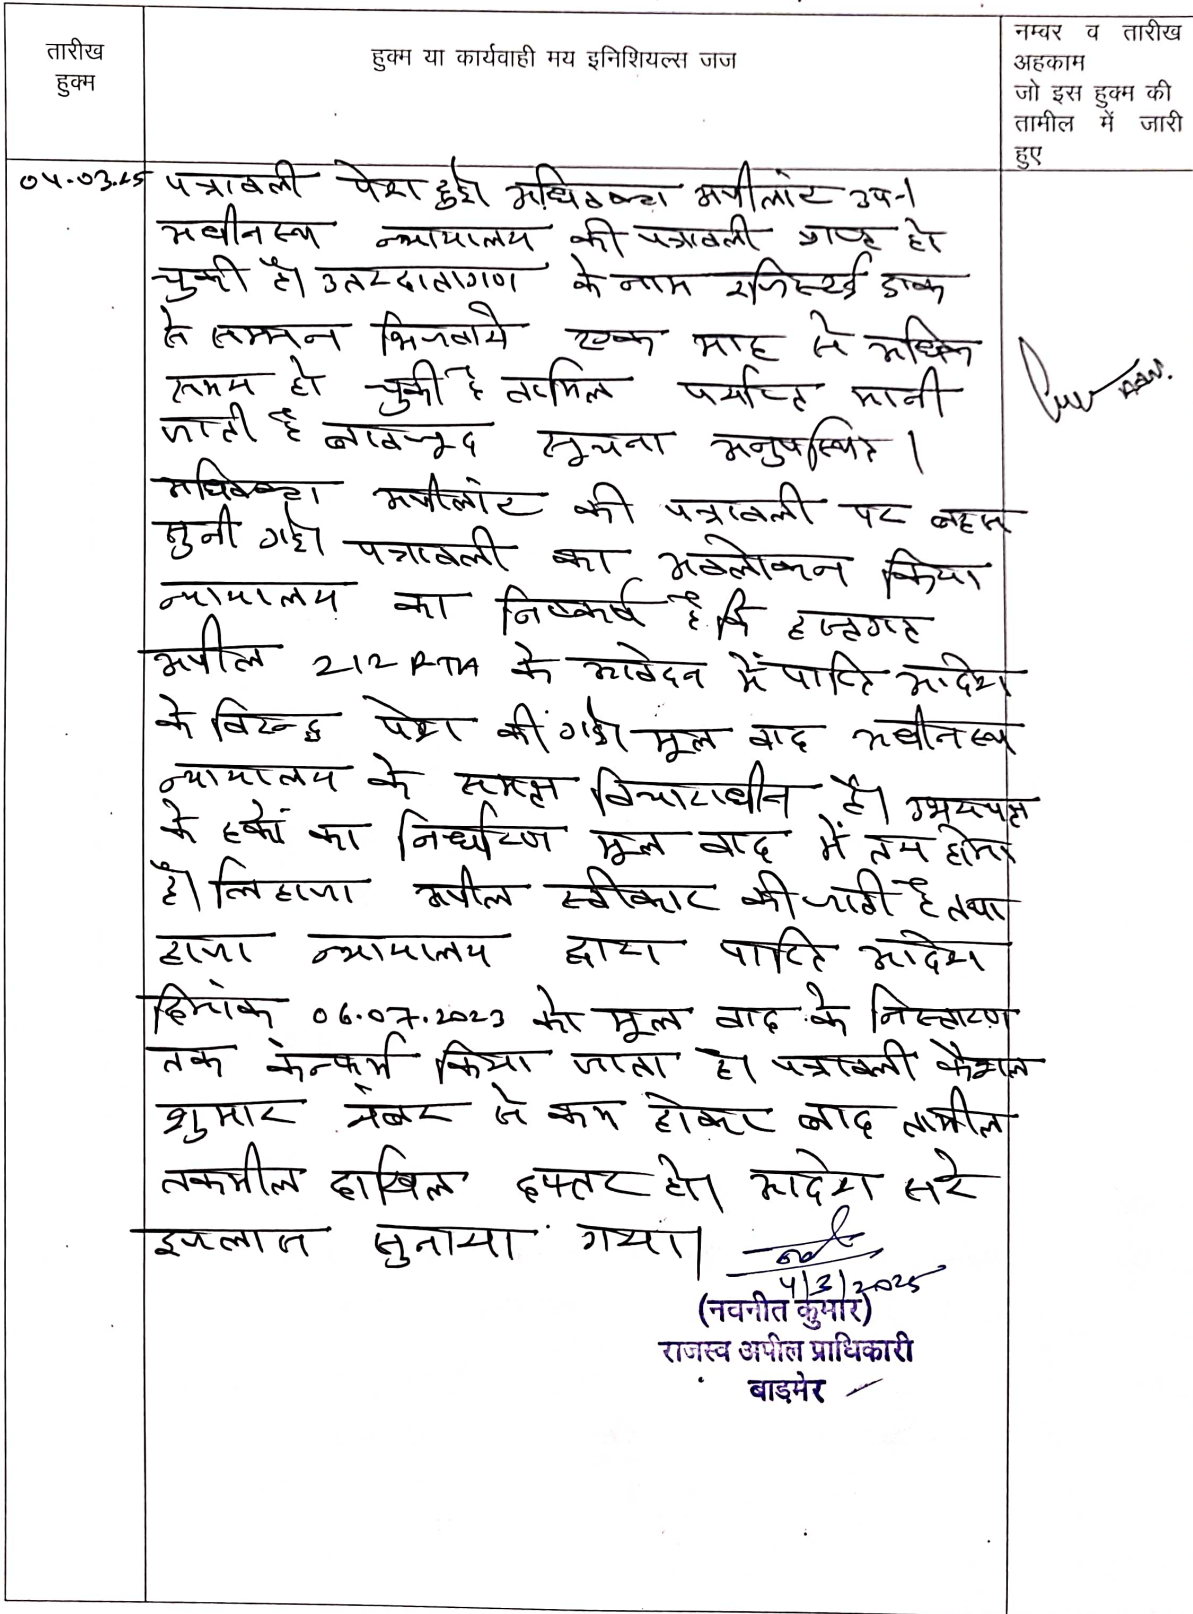 तारीख
हुक्म
हुक्म या कार्यवाही मय इनिशियल्स जज
नम्वर व तारीख
अहकाम
जो इस हुक्म की
तामील में जारी
हुए
04.03.25 पत्रावली पेश हुई। अधिवक्ता अपीलांट उप.।
अधीनस्थ न्यायालय की पत्रावली प्राप्त हो
चुकी है। उतरदातागण के नाम रजिस्टर्ड डाक
से सम्मन भिजवाये एक माह से अधिक
समय हो चुकी है तामिल पर्याप्त मानी
जाती है बावजूद सूचना अनुपस्थित।
अधिवक्ता अपीलांट की पत्रावली पर बहस
सुनी गई। पत्रावली का अवलोकन किया
न्यायालय का निष्कर्ष है कि हस्तगत
अपील 212 RTA के आवेदन में पारित आदेश
के विरुद्ध पेश की गई। मूल वाद अधीनस्थ
न्यायालय के समक्ष विचाराधीन है। उभयपक्ष
के हकों का निर्धारण मूल वाद में तय होना
है। लिहाजा अपील स्वीकार की जाती है तथा
हाजा न्यायालय द्वारा पारित आदेश
दिनांक 06.07.2023 को मूल वाद के निस्तारण
तक कन्फर्म किया जाता है। पत्रावली फैसल
शुमार नंबर से कम होकर बाद तामील
तकमील दाखिल दफ्तर हो। आदेश सरे
इजलास सुनाया गया।
4/3/2025
(नवनीत कुमार)
राजस्व अपील प्राधिकारी
बाड़मेर